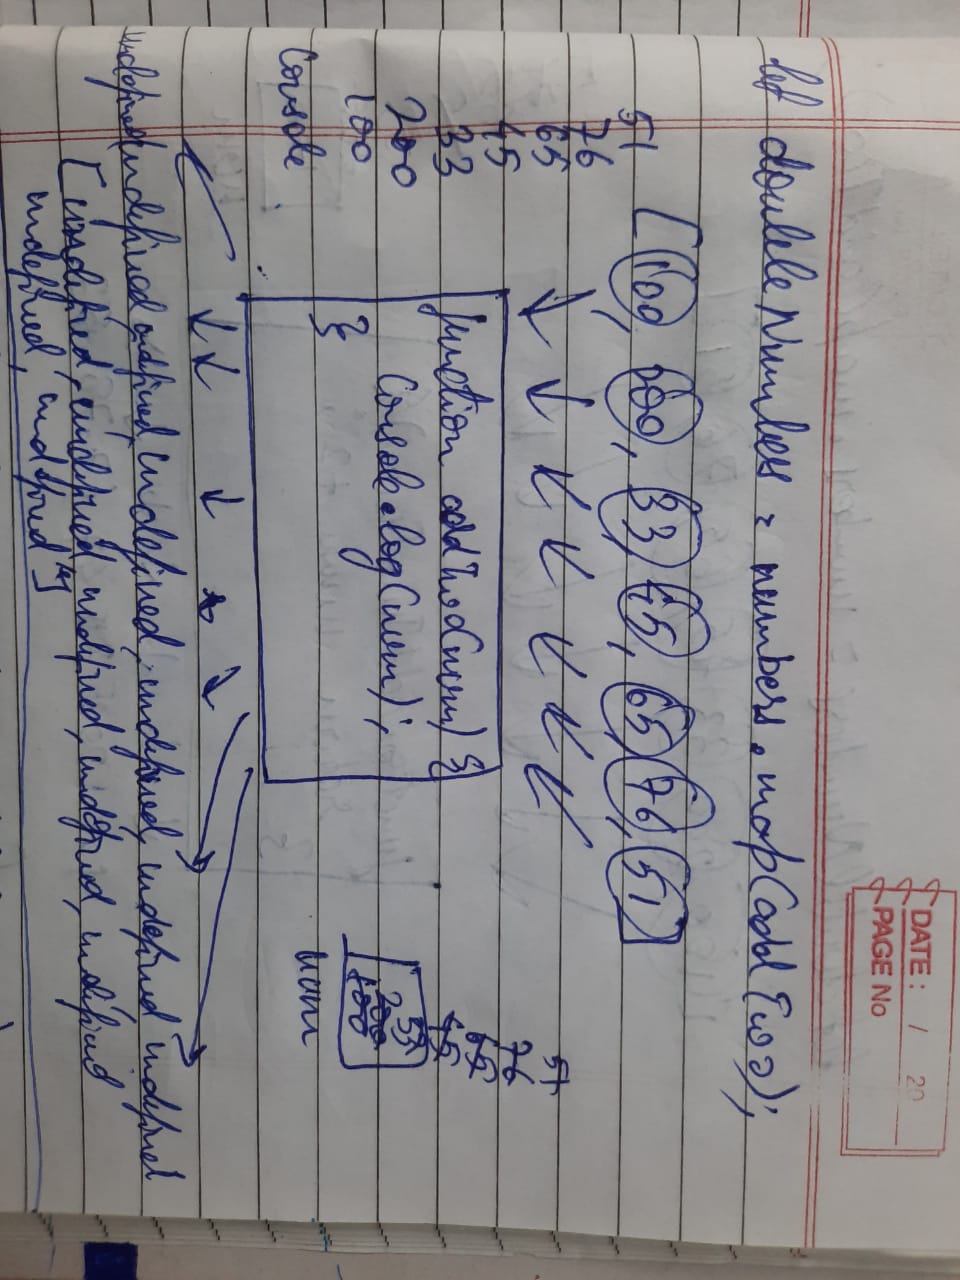 DATE: / 20
PAGE No
let double Numbes = numbers.map(add Two);
[100, 200, 33, 45, 65, 76, 51]
51
76
65
45
33
200
100
Console
function addTwo(num) {
Console.log(num);
}
51
76
65
45
33
200
100
num
undefined undefined undefined, undefined, undefined, undefined undefined
[undefined, undefined, undefined, undefined, undefined
undefined, undefined]